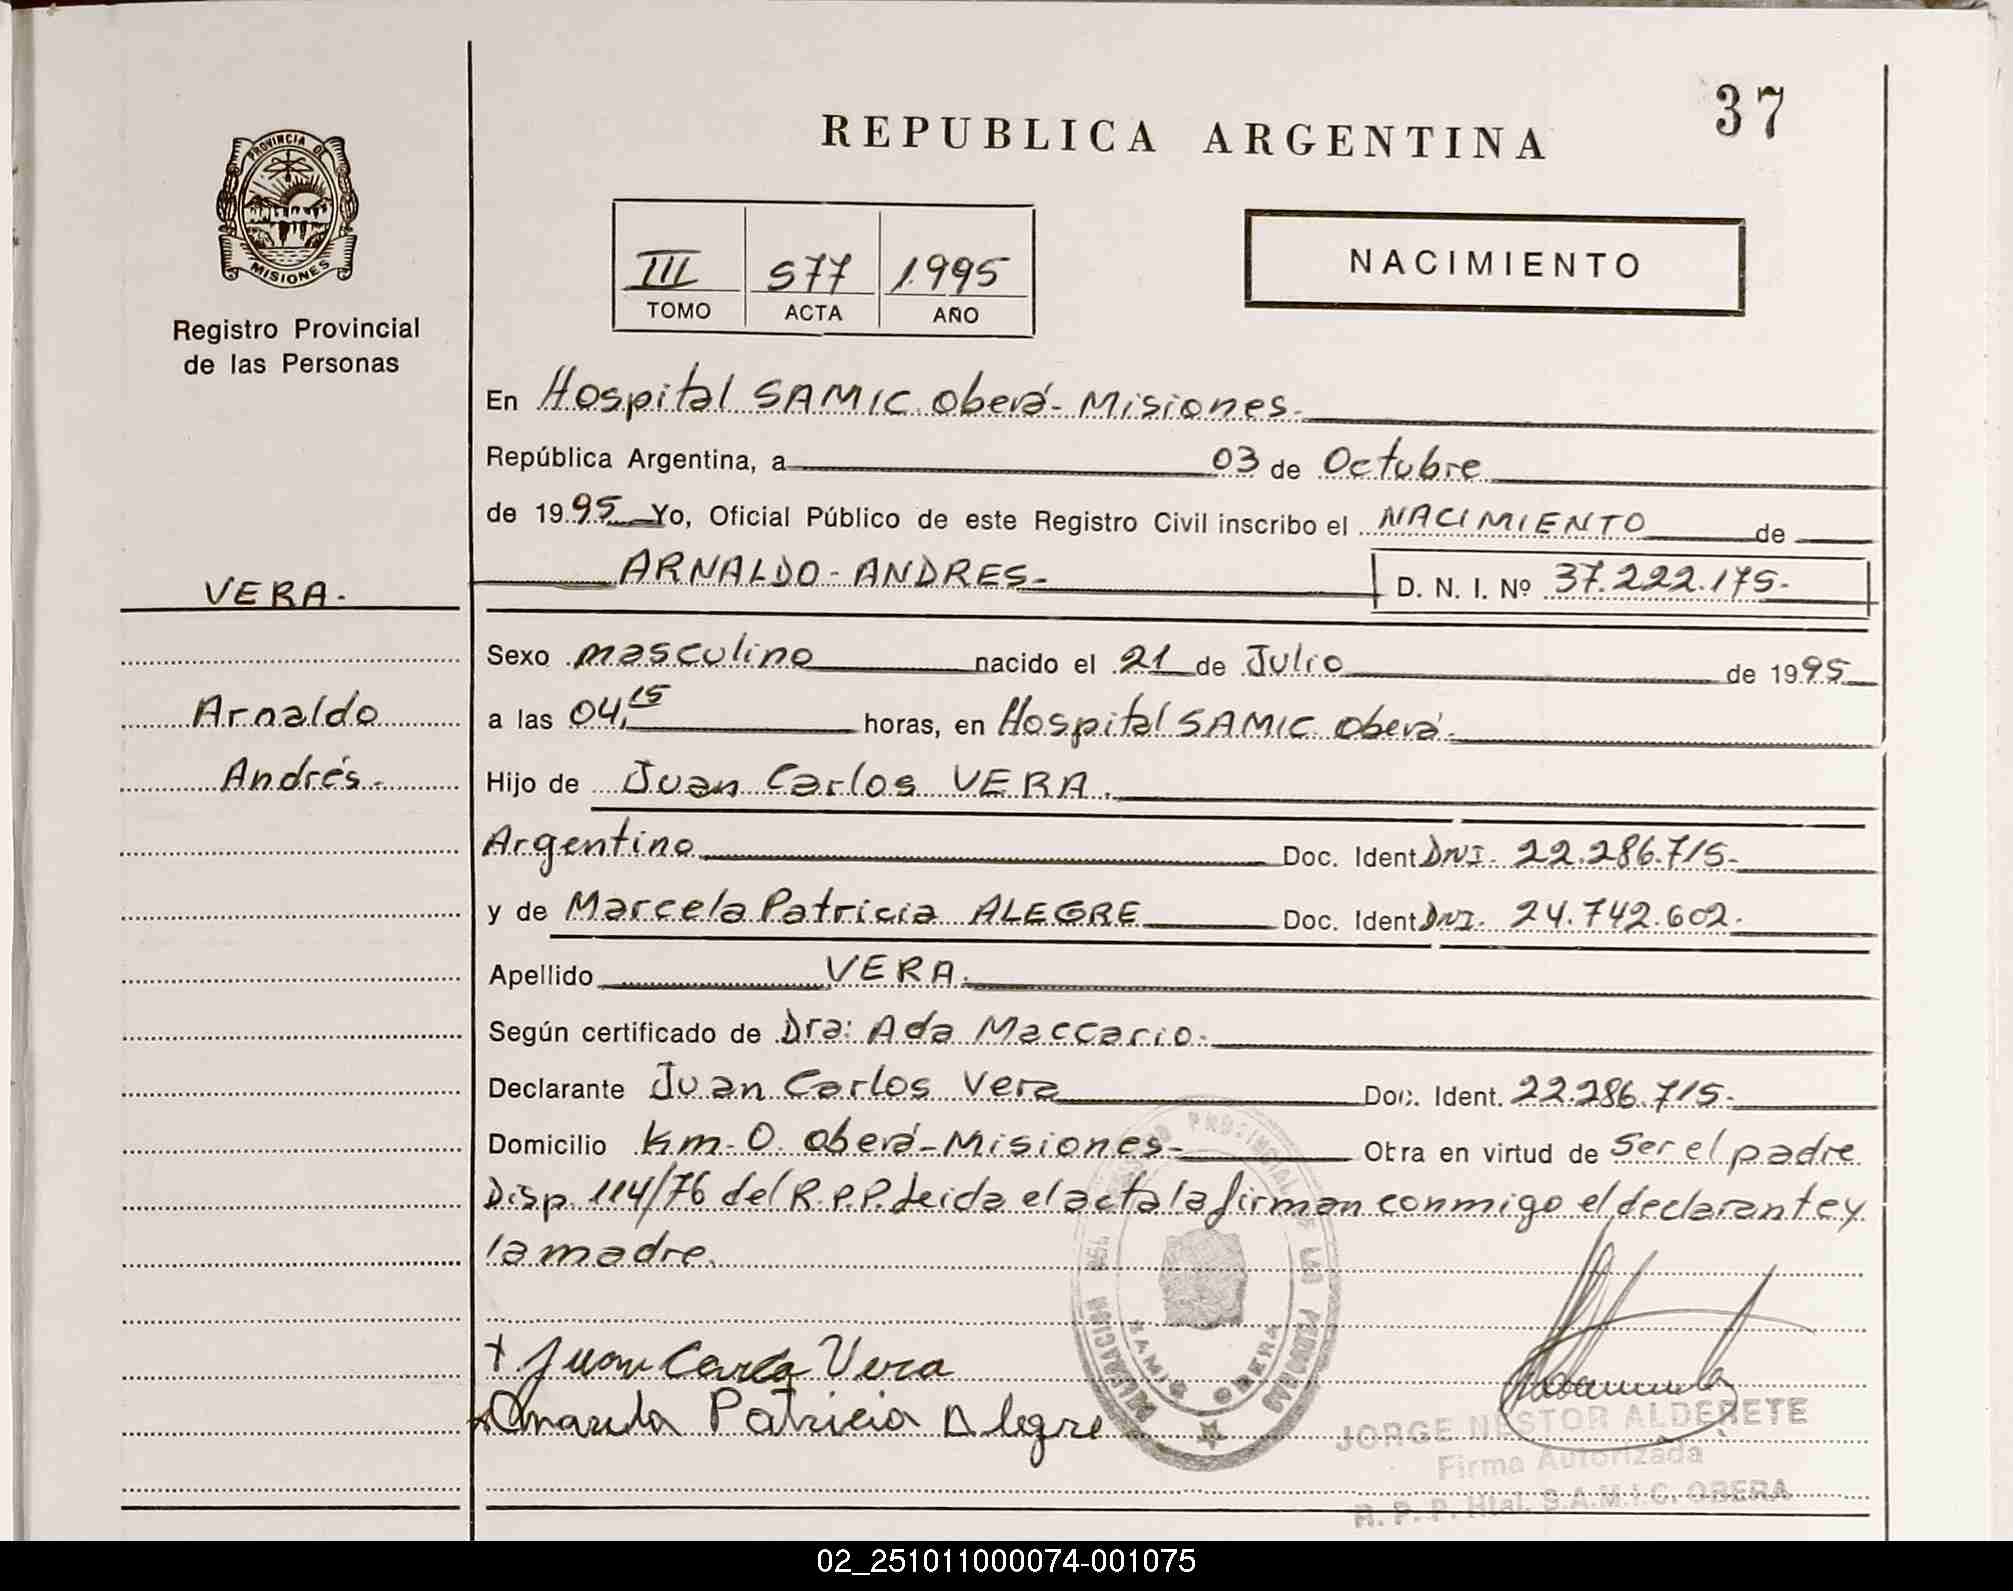 37
REPUBLICA ARGENTINA
PROVINCIA DE
MISIONES
Registro Provincial
de las Personas
III 577 1.995
TOMO ACTA AÑO
NACIMIENTO
En Hospital SAMIC Oberá - Misiones.
República Argentina, a 03 de Octubre
de 1995 Yo, Oficial Público de este Registro Civil inscribo el NACIMIENTO de
VERA.
ARNALDO - ANDRES - D. N. I. Nº 37.222.175.-
Sexo masculino nacido el 21 de Julio de 1995
Arnaldo
a las 04,15 horas, en Hospital SAMIC Oberá.
Andrés.-
Hijo de Juan Carlos VERA.
Argentino Doc. Ident DNI. 22.286.715.-
y de Marcela Patricia ALEGRE Doc. Ident DNI. 24.742.602.
Apellido VERA.
Según certificado de Dra: Ada Maccario.
Declarante Juan Carlos Vera Doc. Ident. 22.286.715.-
Domicilio Km-0. Oberá - Misiones - Obra en virtud de Ser el padre
Disp. 114/76 del R.P.P. Leida el acta la firman conmigo el declarante y
la madre.
DELEGACION DEL REGISTRO PROVINCIAL DE LAS PERSONAS
SAMIC OBERA
+ Juan Carlos Vera
Marcela Patricia Alegre
JORGE NESTOR ALDERETE
Firma Autorizada
R. P. P. Htal. S.A.M.I.C. OBERA
02_251011000074-001075